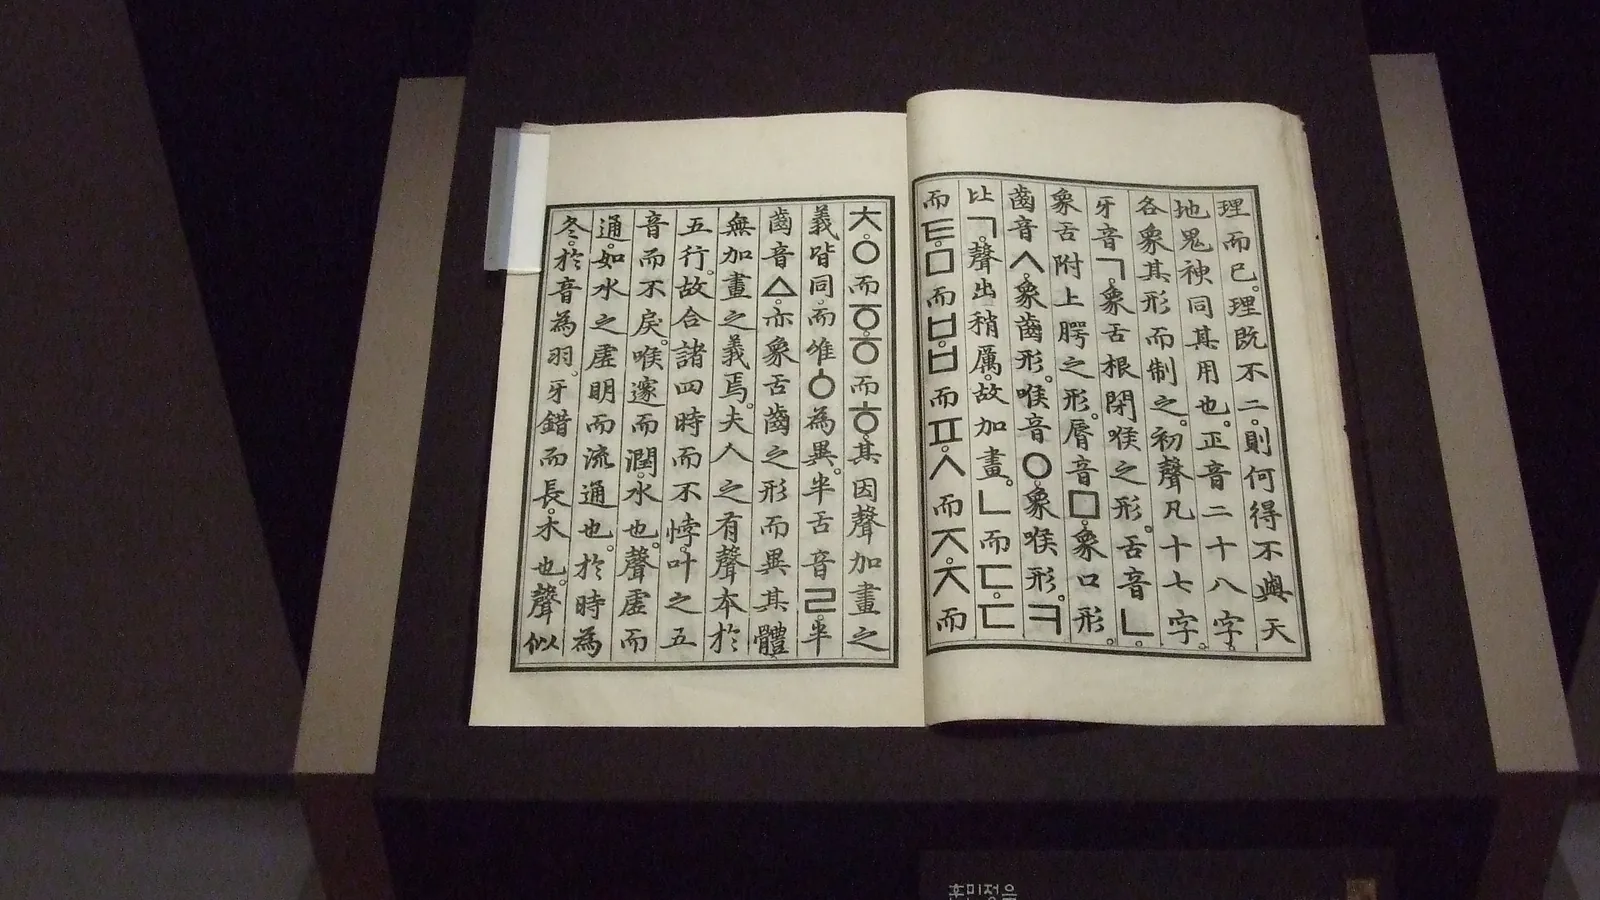 理而已。理既不二。則何得不與天
地鬼神同其用也。正音二十八字。
各象其形而制之。初聲凡十七字。
牙音ㄱ。象舌根閉喉之形。舌音ㄴ。
象舌附上腭之形。脣音ㅁ。象口形。
齒音ㅅ。象齒形。喉音ㅇ。象喉形。ㅋ
比ㄱ。聲出稍厲。故加畫。ㄴ而ㄷ。ㄷ
而ㅌ。ㅁ而ㅂ。ㅂ而ㅍ。ㅅ而ㅈ。ㅈ而
ㅊ。ㅇ而ㆆ。ㆆ而ㅎ。其因聲加畫之
義皆同。而唯ㆁ為異。半舌音ㄹ。半
齒音ㅿ。亦象舌齒之形而異其體。
無加畫之義焉。夫人之有聲本於
五行。故合諸四時而不悖。叶之五
音而不戾。喉邃而潤。水也。聲虛而
通。如水之虛明而流通也。於時為
冬。於音為羽。牙錯而長。木也。聲似
훈민정음